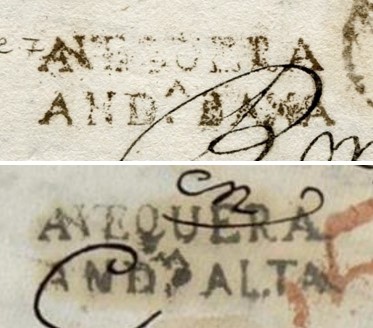 ANTEQUERA
AND.ᴬ BAXA
ANTEQUERA
AND.ᴬ ALTA